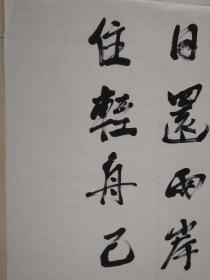 日還兩岸
住輕舟已